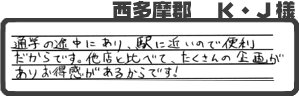 西多摩郡　K・J様
通学の途中にあり、駅に近いので便利
だからです。他店と比べて、たくさんの企画が
ありお得感があるからです!